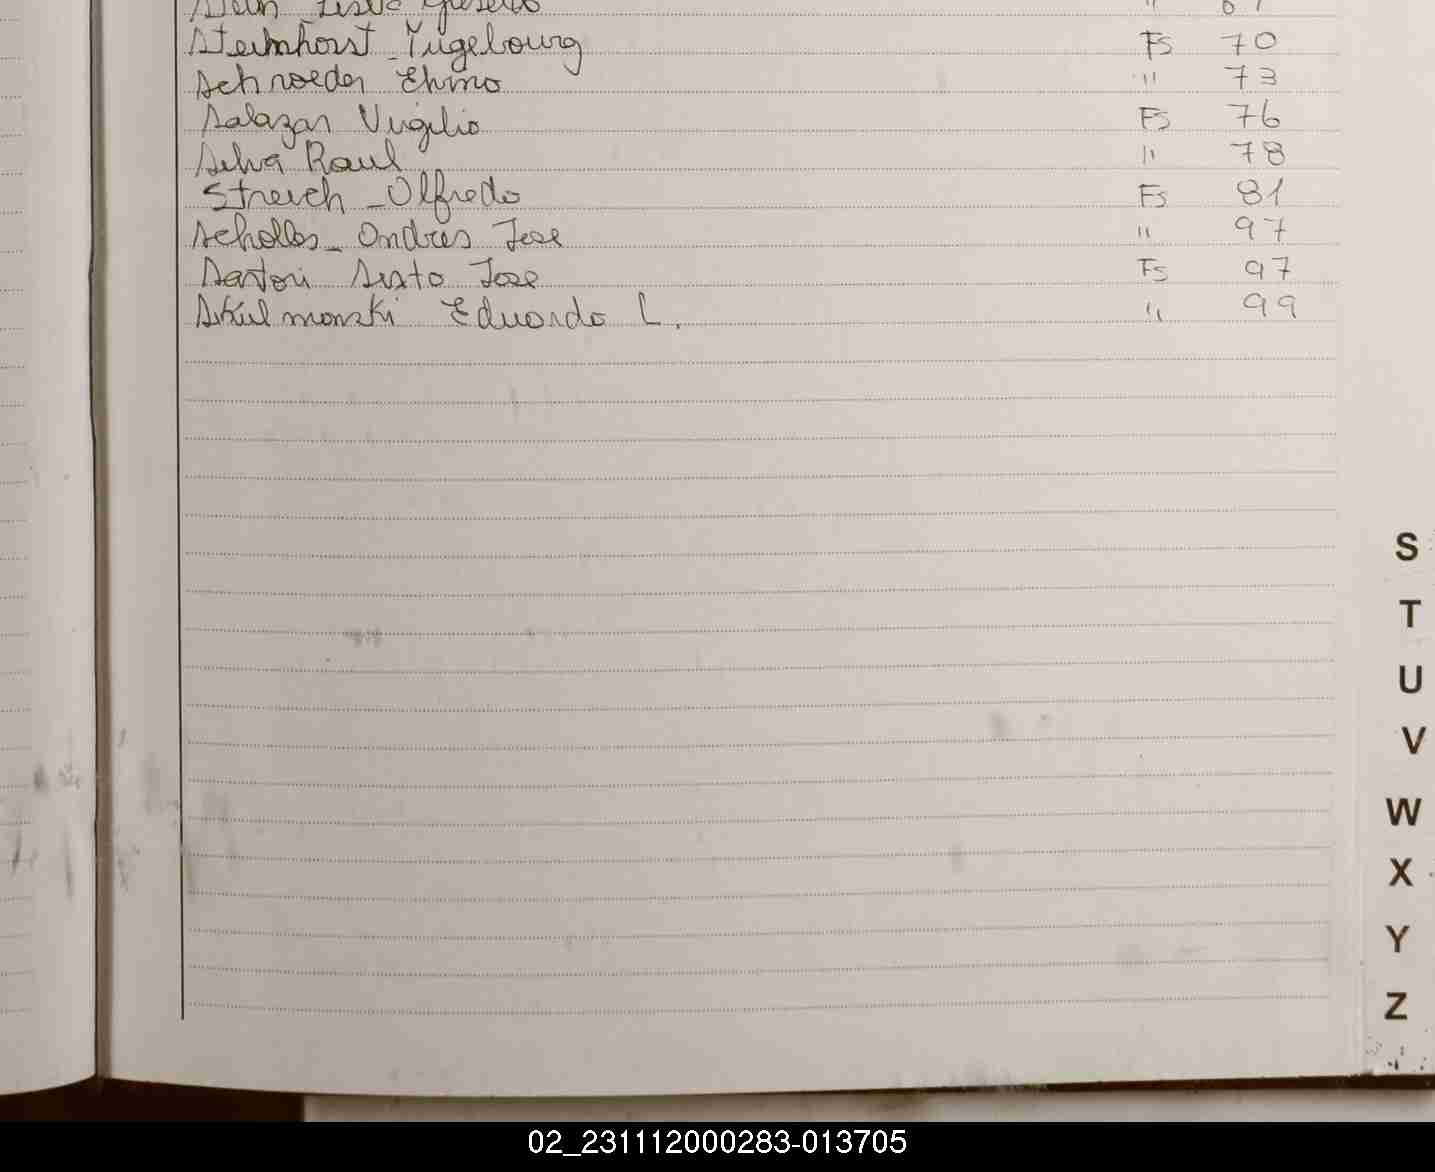 Steinhorst Yugebourg Fs 70
Schroeder Ehmo " 73
Salazar Virgilio Fs 76
Silva Raul " 78
Streich - Olfredo Fs 81
Scholles - Ondres Jose " 97
Sartori Sixto Jose Fs 97
Skulmonski Eduardo L. " 99
S
T
U
V
W
X
Y
Z
02_231112000283-013705